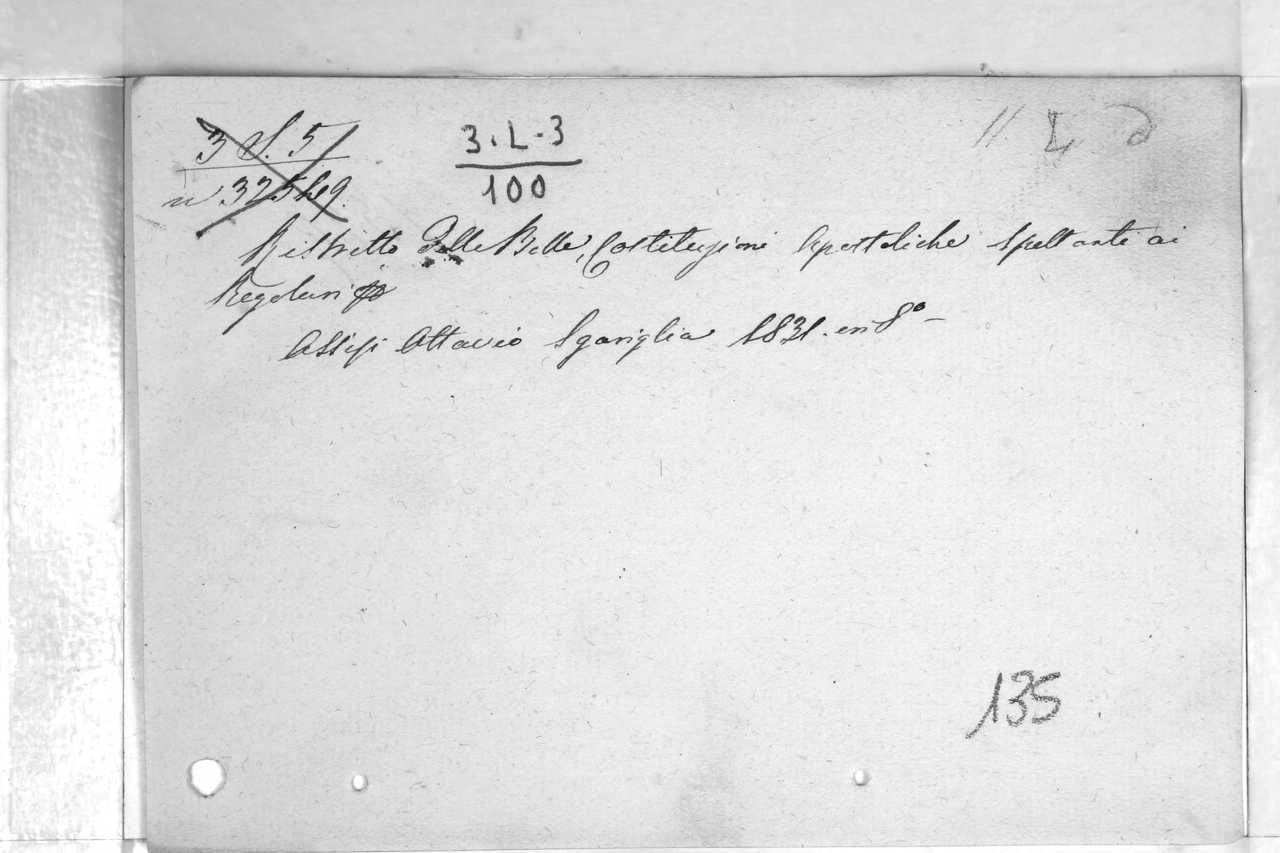 3 · L · 3
100
Ristretto delle Bolle, Costituzioni Apostoliche spettanti ai
Regolari
Assisi Ottavio Sgariglia 1831. in 8º —
135